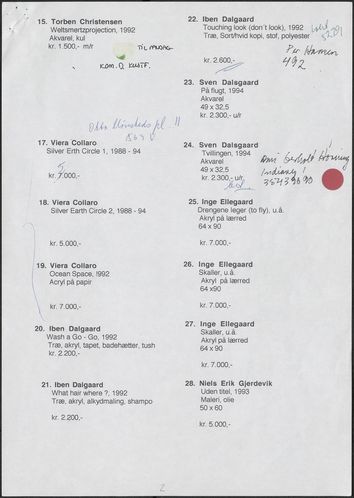 15. Torben Christensen
Weltsmertzprojection, 1992
Akvarel, kul
kr. 1.500,- m/r
17. Viera Collaro
Silver Erth Circle 1, 1988 - 94
kr. 7.000,-
18. Viera Collaro
Silver Earth Circle 2, 1988 - 94
kr. 5.000,-
19. Viera Collaro
Ocean Space, 1992
Acryl på papir
kr. 7.000,-
20. Iben Dalgaard
Wash a Go - Go, 1992
Træ, akryl, tapet, badehætter, tush
kr. 2.200,-
21. Iben Dalgaard
What hair where ?, 1992
Træ, akryl, alkydmaling, shampo
kr. 2.200,-
22. Iben Dalgaard
Touching look (don't look), 1992
Træ, Sort/hvid kopi, stof, polyester
kr. 2.600,-
Per
492
23. Sven Dalsgaard
På flugt, 1994
Akvarel
49 x 32,5
kr. 2.300,- u/r
24. Sven Dalsgaard
Tvillingen, 1994
Akvarel
49 x 32,5
kr. 2.300,- u/r
25. Inge Ellegaard
Drengene leger (to fly), u.å.
Akryl på lærred
64 x 90
kr. 7.000,-
26. Inge Ellegaard
Skaller, u.å.
Akryl på lærred
64 x90
kr. 7.000,-
27. Inge Ellegaard
Skaller, u.å.
Akryl på lærred
64 x 90
kr. 7.000,-
28. Niels Erik Gjerdevik
Uden titel, 1993
Maleri, olie
50 x 60
kr. 5.000,-
2